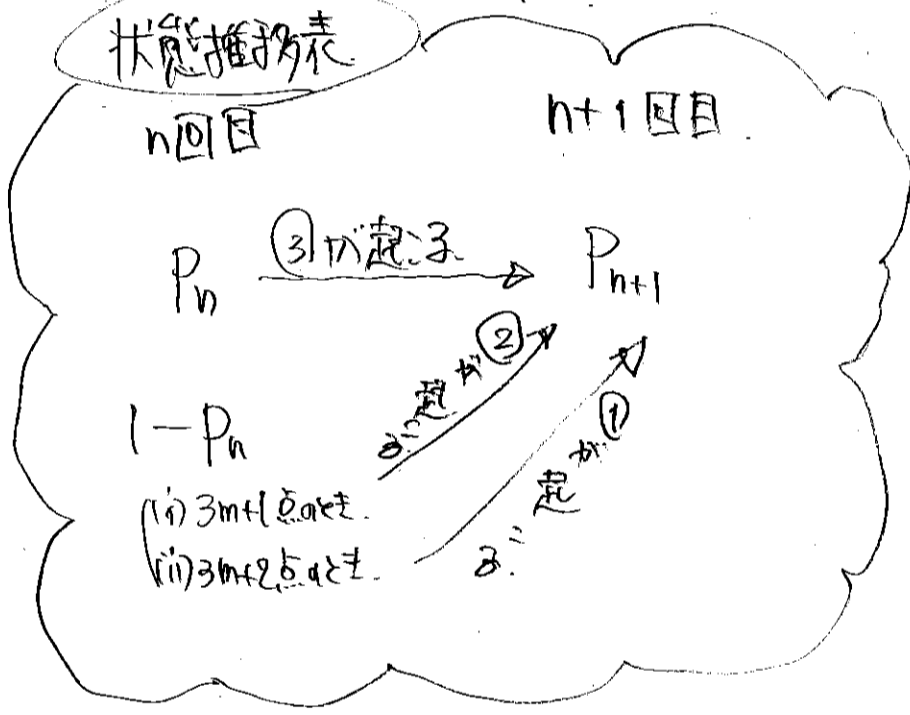 状態推移表
n回目
n+1回目
Pn ③が起こる Pn+1
②が起こる
1-Pn
①が起こる
(i) 3m+1点のとき.
(ii) 3m+2点のとき.